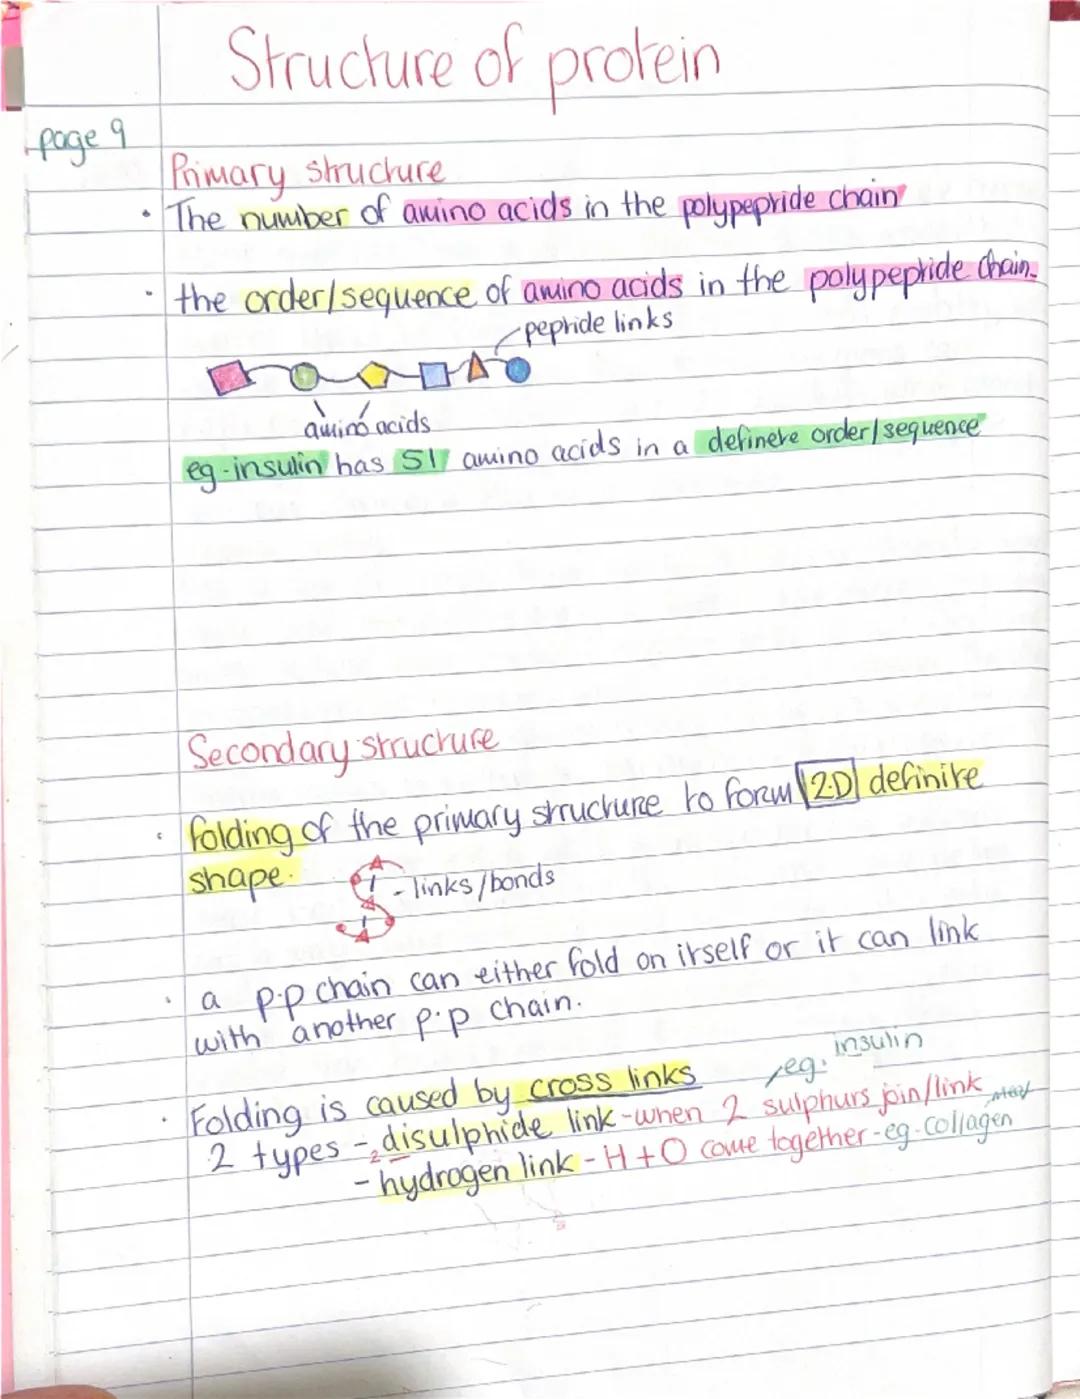 Structure of protein
page 9
Primary structure
• The number of amino acids in the polypeptide chain
• the order/sequence of amino acids in the polypeptide chain.
peptide links
amino acids
eg-insulin has 51 amino acids in a definete order/sequence
Secondary structure
• folding of the primary structure to form 2.D definite
shape.
- links/bonds
• a p.p chain can either fold on itself or it can link
with another p.p chain.
eg. insulin
• Folding is caused by cross links
2 types - disulphide link - when 2 sulphurs join/link
2
meat
- hydrogen link - H + O come together - eg. collagen